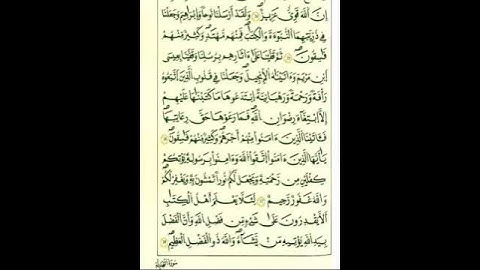 إِنَّ اللَّهَ قَوِيٌّ عَزِيزٌ ۝ وَلَقَدْ أَرْسَلْنَا نُوحًا وَإِبْرَاهِيمَ وَجَعَلْنَا
فِي ذُرِّيَّتِهِمَا النُّبُوءَةَ وَالْكِتَابَ فَمِنْهُم مُّهْتَدٍ وَكَثِيرٌ مِّنْهُمْ
فَاسِقُونَ ۝ ثُمَّ قَفَّيْنَا عَلَىٰ آثَارِهِم بِرُسُلِنَا وَقَفَّيْنَا بِعِيسَى
ابْنِ مَرْيَمَ وَءَاتَيْنَاهُ الْإِنجِيلَ وَجَعَلْنَا فِي قُلُوبِ الَّذِينَ اتَّبَعُوهُ
رَأْفَةً وَرَحْمَةً وَرَهْبَانِيَّةً ابْتَدَعُوهَا مَا كَتَبْنَاهَا عَلَيْهِمْ
إِلَّا ابْتِغَاءَ رِضْوَانِ اللَّهِ فَمَا رَعَوْهَا حَقَّ رِعَايَتِهَا
فَـَٔاتَيْنَا الَّذِينَ ءَامَنُوا مِنْهُمْ أَجْرَهُمْ وَكَثِيرٌ مِّنْهُمْ فَاسِقُونَ ۝
يَا أَيُّهَا الَّذِينَ ءَامَنُوا اتَّقُوا اللَّهَ وَءَامِنُوا بِرَسُولِهِ يُؤْتِكُمْ
كِفْلَيْنِ مِن رَّحْمَتِهِ وَيَجْعَل لَّكُمْ نُورًا تَمْشُونَ بِهِ وَيَغْفِرْ لَكُمْ
وَاللَّهُ غَفُورٌ رَّحِيمٌ ۝ لِّئَلَّا يَعْلَمَ أَهْلُ الْكِتَابِ
أَلَّا يَقْدِرُونَ عَلَىٰ شَيْءٍ مِّن فَضْلِ اللَّهِ وَأَنَّ الْفَضْلَ
بِيَدِ اللَّهِ يُؤْتِيهِ مَن يَشَاءُ وَاللَّهُ ذُو الْفَضْلِ الْعَظِيمِ ۝